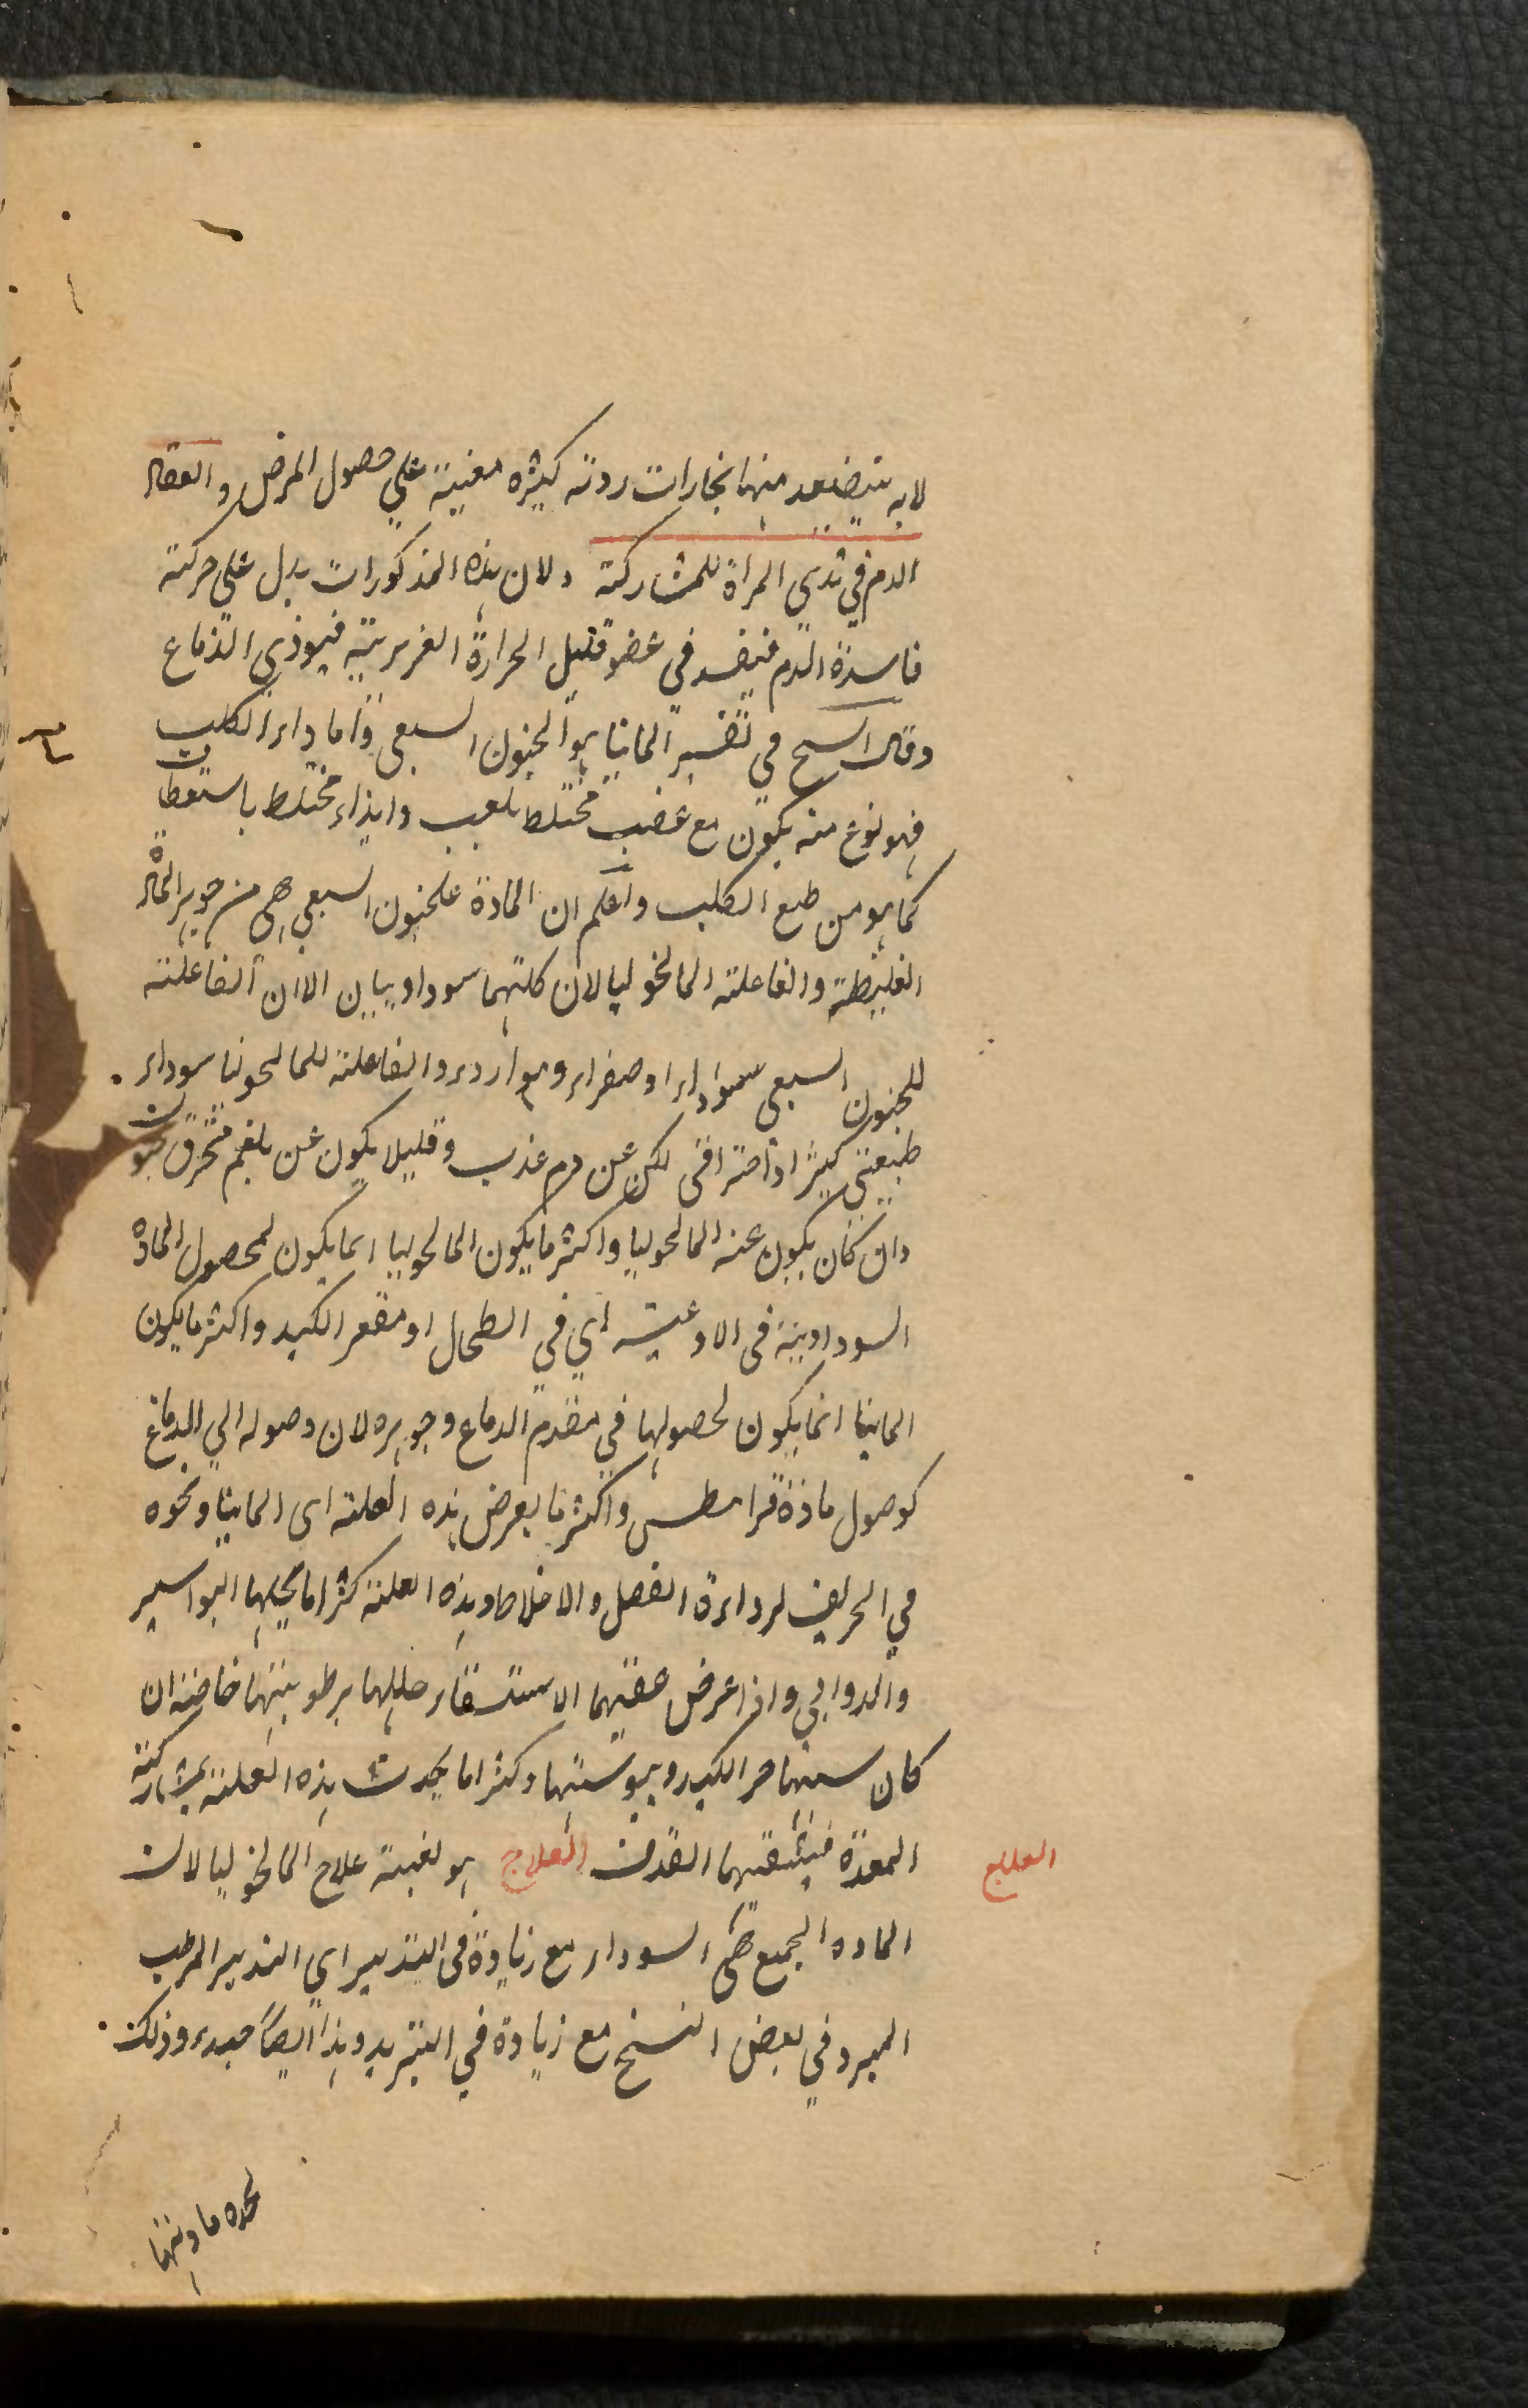 لانه يتصعد منها بخارات ردية كثيره معنية على حصول المرض وانعقاد
الدم في ثدي المراة للمشاركة ولان هذه المذكورات يدل على حركة
فاسدة الدم فيفسد في عضو قليل الحرارة الغريزية فيوذي الدماغ
وقال الشيخ في تفسير المانيا هو الجنون السبعي واما داء الكلب
فهو نوع منه يكون مع غضب مختلط بلعب وايذاء مختلط باستعطاف
كما هو من طبع الكلب واعلم ان المادة للجنون السبعي هي من جوهر المادة
الغليظة والفاعلة المالنخوليا لان كلتهما سوداويان الا ان الفاعلة
للجنون السبعي سوداء او صفراء وهو اردء والفاعلة للمالنخوليا سوداء
طبيعتي كثيرا او احتراقى لكن عن دم عذب وقليلا يكون عن بلغم محترق
وان كان يكون عنه المالنخوليا واكثر ما يكون المالنخوليا انما يكون لحصول المادة
السوداوية في الاوعية اي في الطحال او مقعر الكبد واكثر ما يكون
المانيا انما يكون لحصولها في مقدم الدماغ وجوهره لان وصوله الي الدماغ
كوصول مادة قرانيطس واكثر ما يعرض هذه العلة اى المانيا ونحوه
في الخريف لرداءة الفصل والاخلاط وهذه العلة كثيرا ما يحلها البواسير
والدوالي واذا عرض عقيبها الاستسقاء حللها برطوبتها خاصة ان
كان سببها حر الكبد ويبوستها وكثيرا ما يحدث هذه العلة بمشاركة
المعدة فيشفيها القذف العلاج هو بعينه علاج المالنخوليا لان
العلاج
المادة الجميع هي السوداء مع زيادة في التدبير اي التدبير المرطب
المبرد في بعض النسخ مع زيادة في التبريد وهذا ايضا جيد وذلك
لحدة مادتها